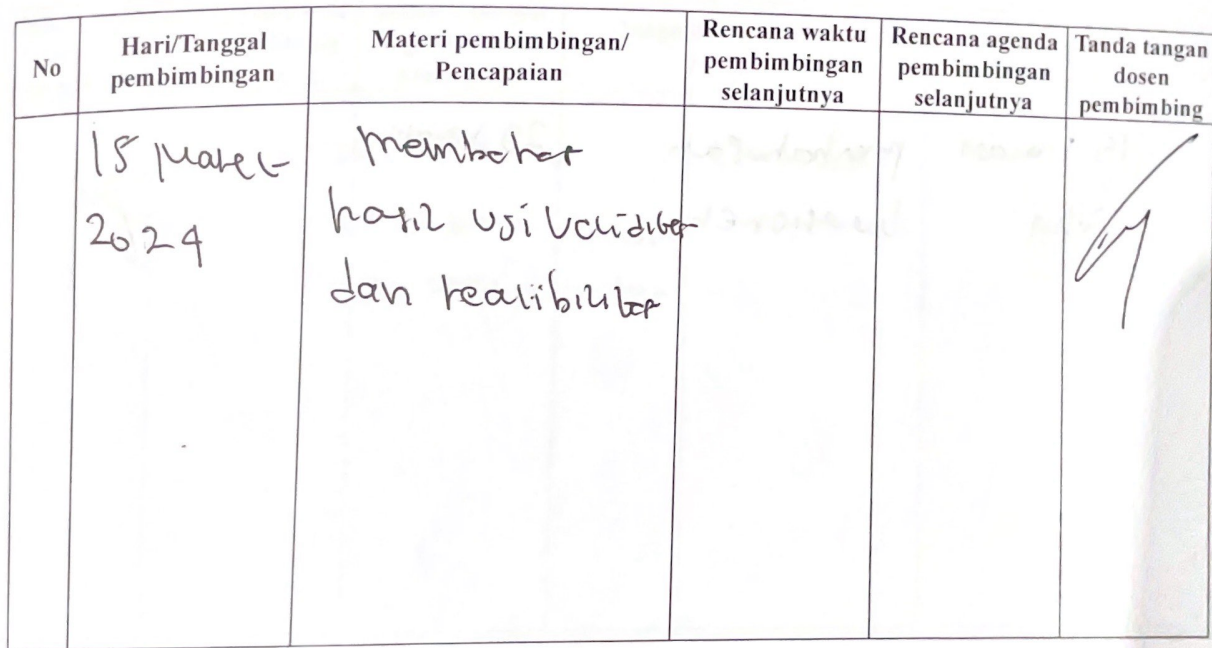 No
Hari/Tanggal
pembimbingan
Materi pembimbingan/
Pencapaian
Rencana waktu
pembimbingan
selanjutnya
Rencana agenda
pembimbingan
selanjutnya
Tanda tangan
dosen
pembimbing
15 Maret
2024
membahas
hasil uji validitas
dan realibilitas